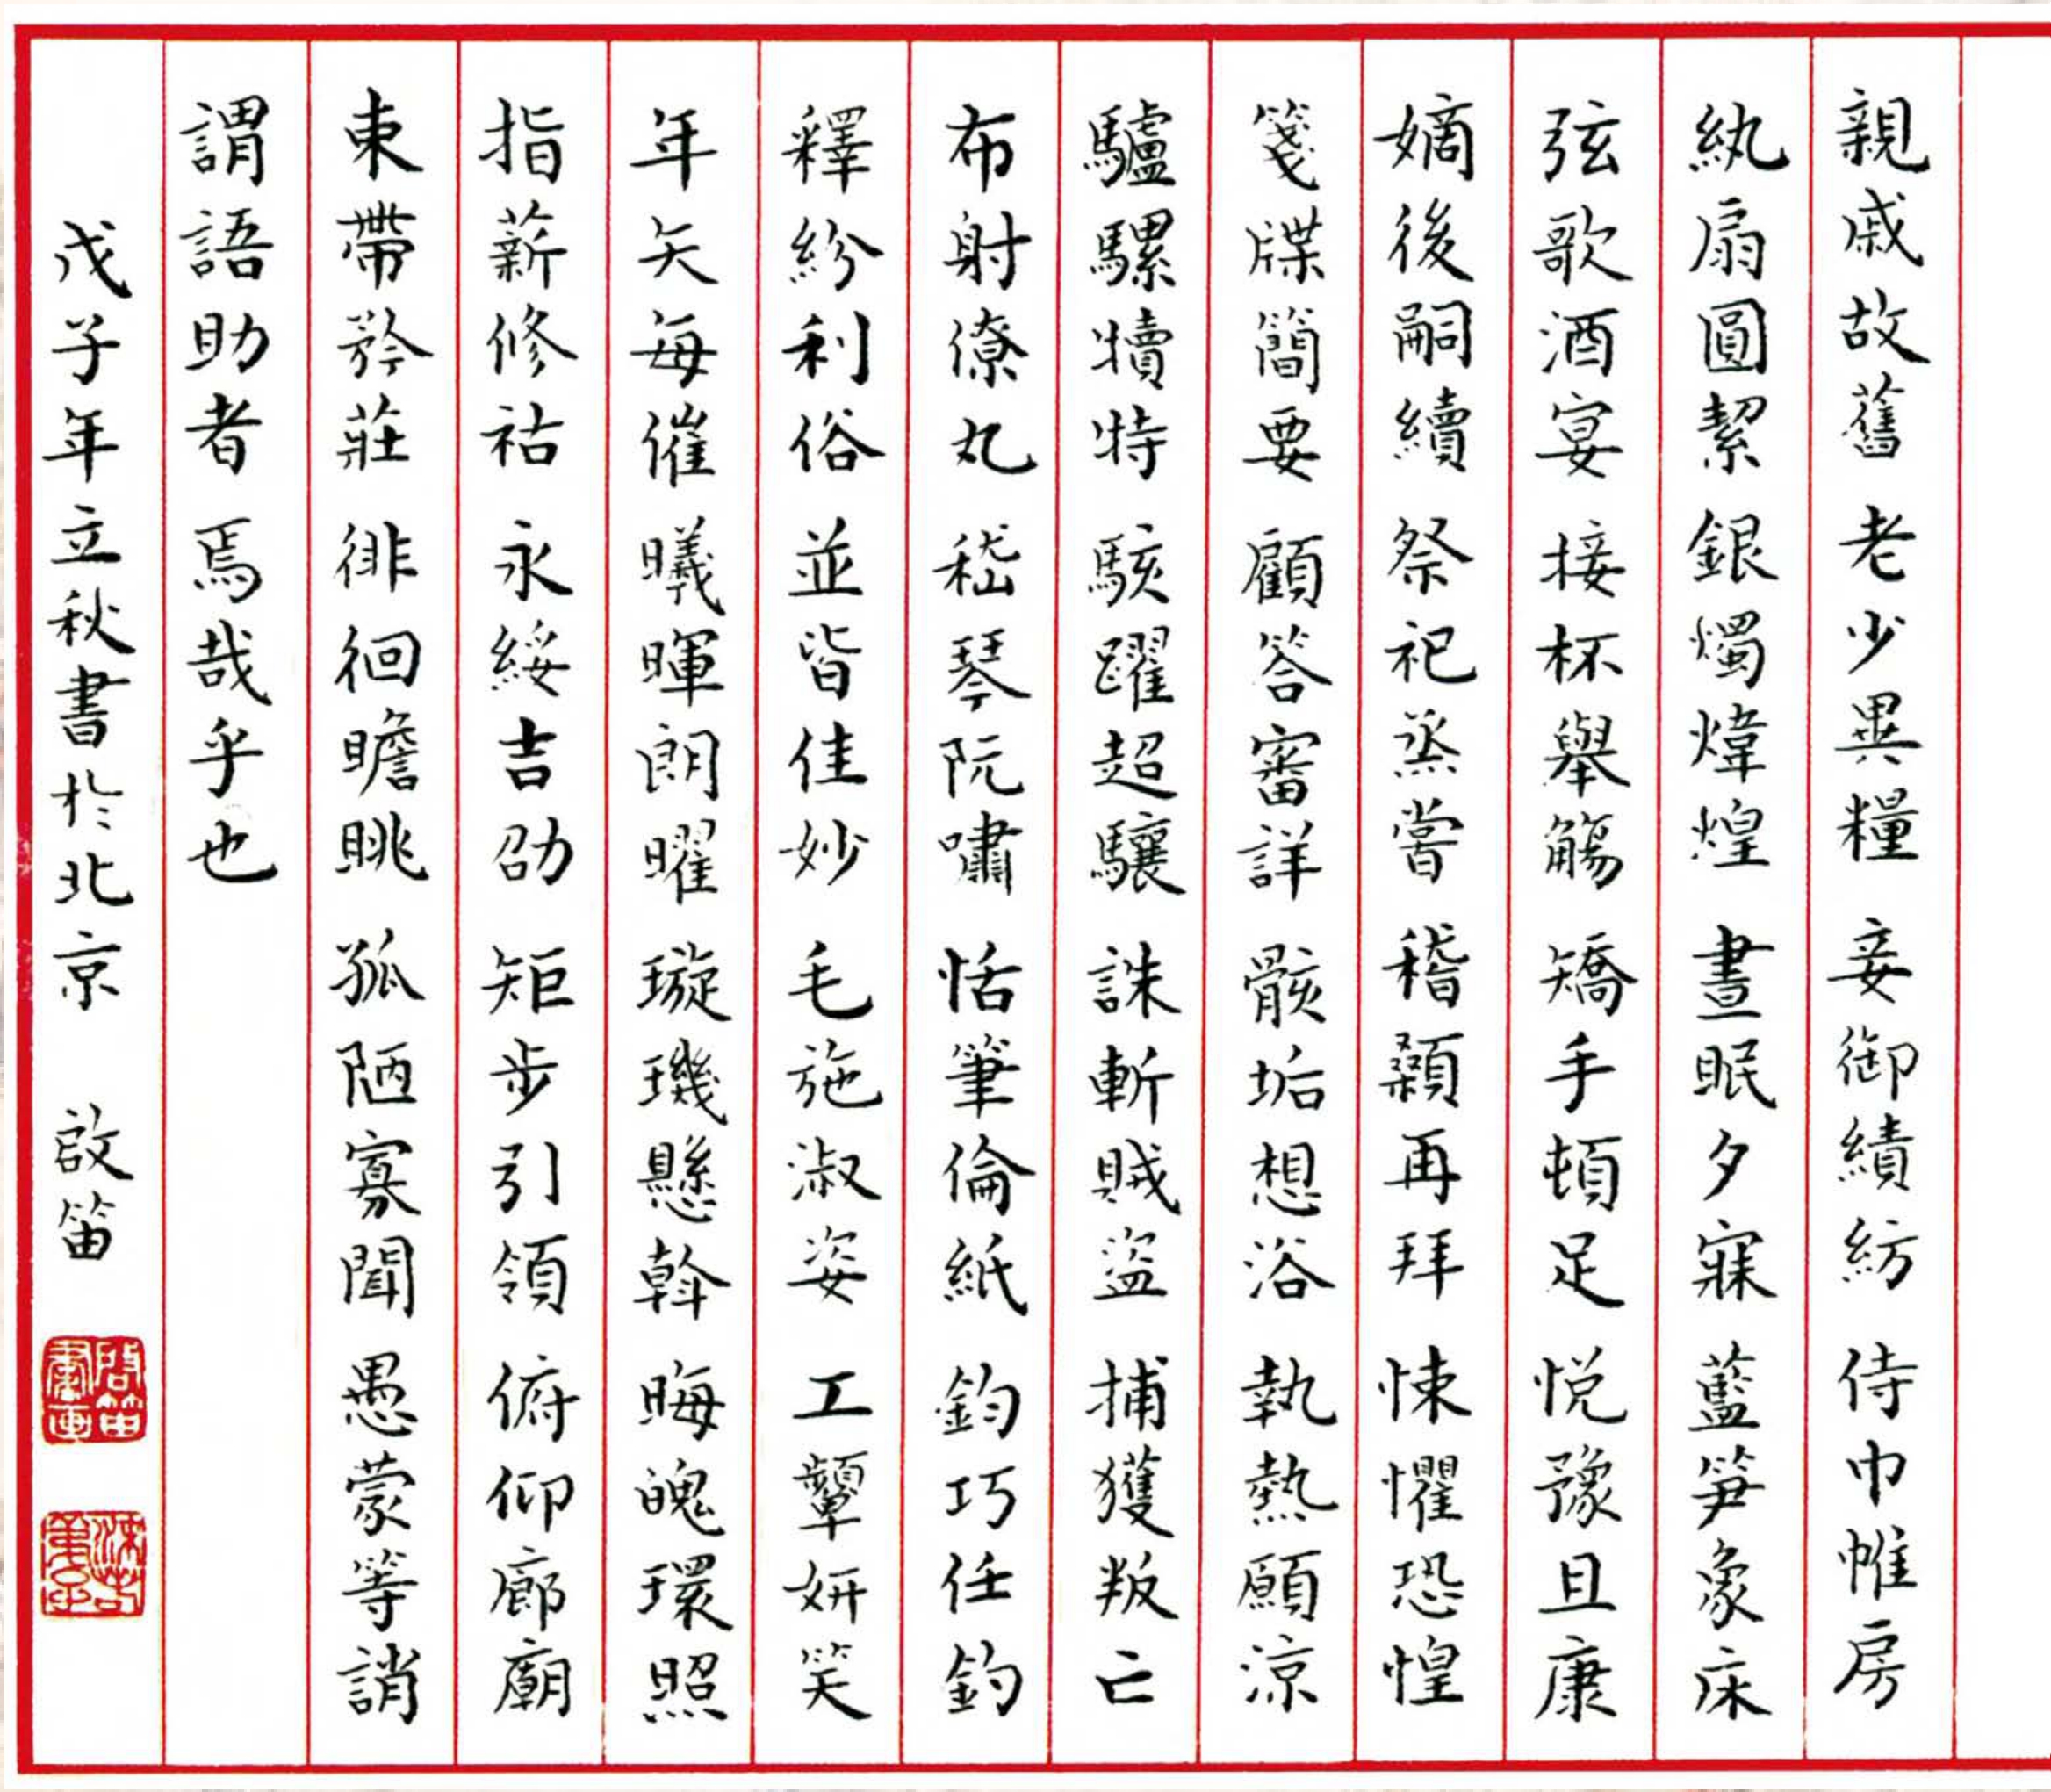 親戚故舊 老少異糧 妾御績紡 侍巾帷房
紈扇圓絜 銀燭煒煌 晝眠夕寐 藍笋象床
弦歌酒宴 接杯舉觴 矯手頓足 悅豫且康
嫡後嗣續 祭祀烝嘗 稽顙再拜 悚懼恐惶
箋牒簡要 顧答審詳 骸垢想浴 執熱願涼
驢騾犢特 駭躍超驤 誅斬賊盜 捕獲叛亡
布射僚丸 嵇琴阮嘯 恬筆倫紙 鈞巧任釣
釋紛利俗 並皆佳妙 毛施淑姿 工顰妍笑
年矢每催 曦暉朗曜 璇璣懸斡 晦魄環照
指薪修祜 永綏吉劭 矩步引領 俯仰廊廟
束帶矜莊 徘徊瞻眺 孤陋寡聞 愚蒙等誚
謂語助者 焉哉乎也
戊子年立秋書於北京 啟笛
啟笛書画